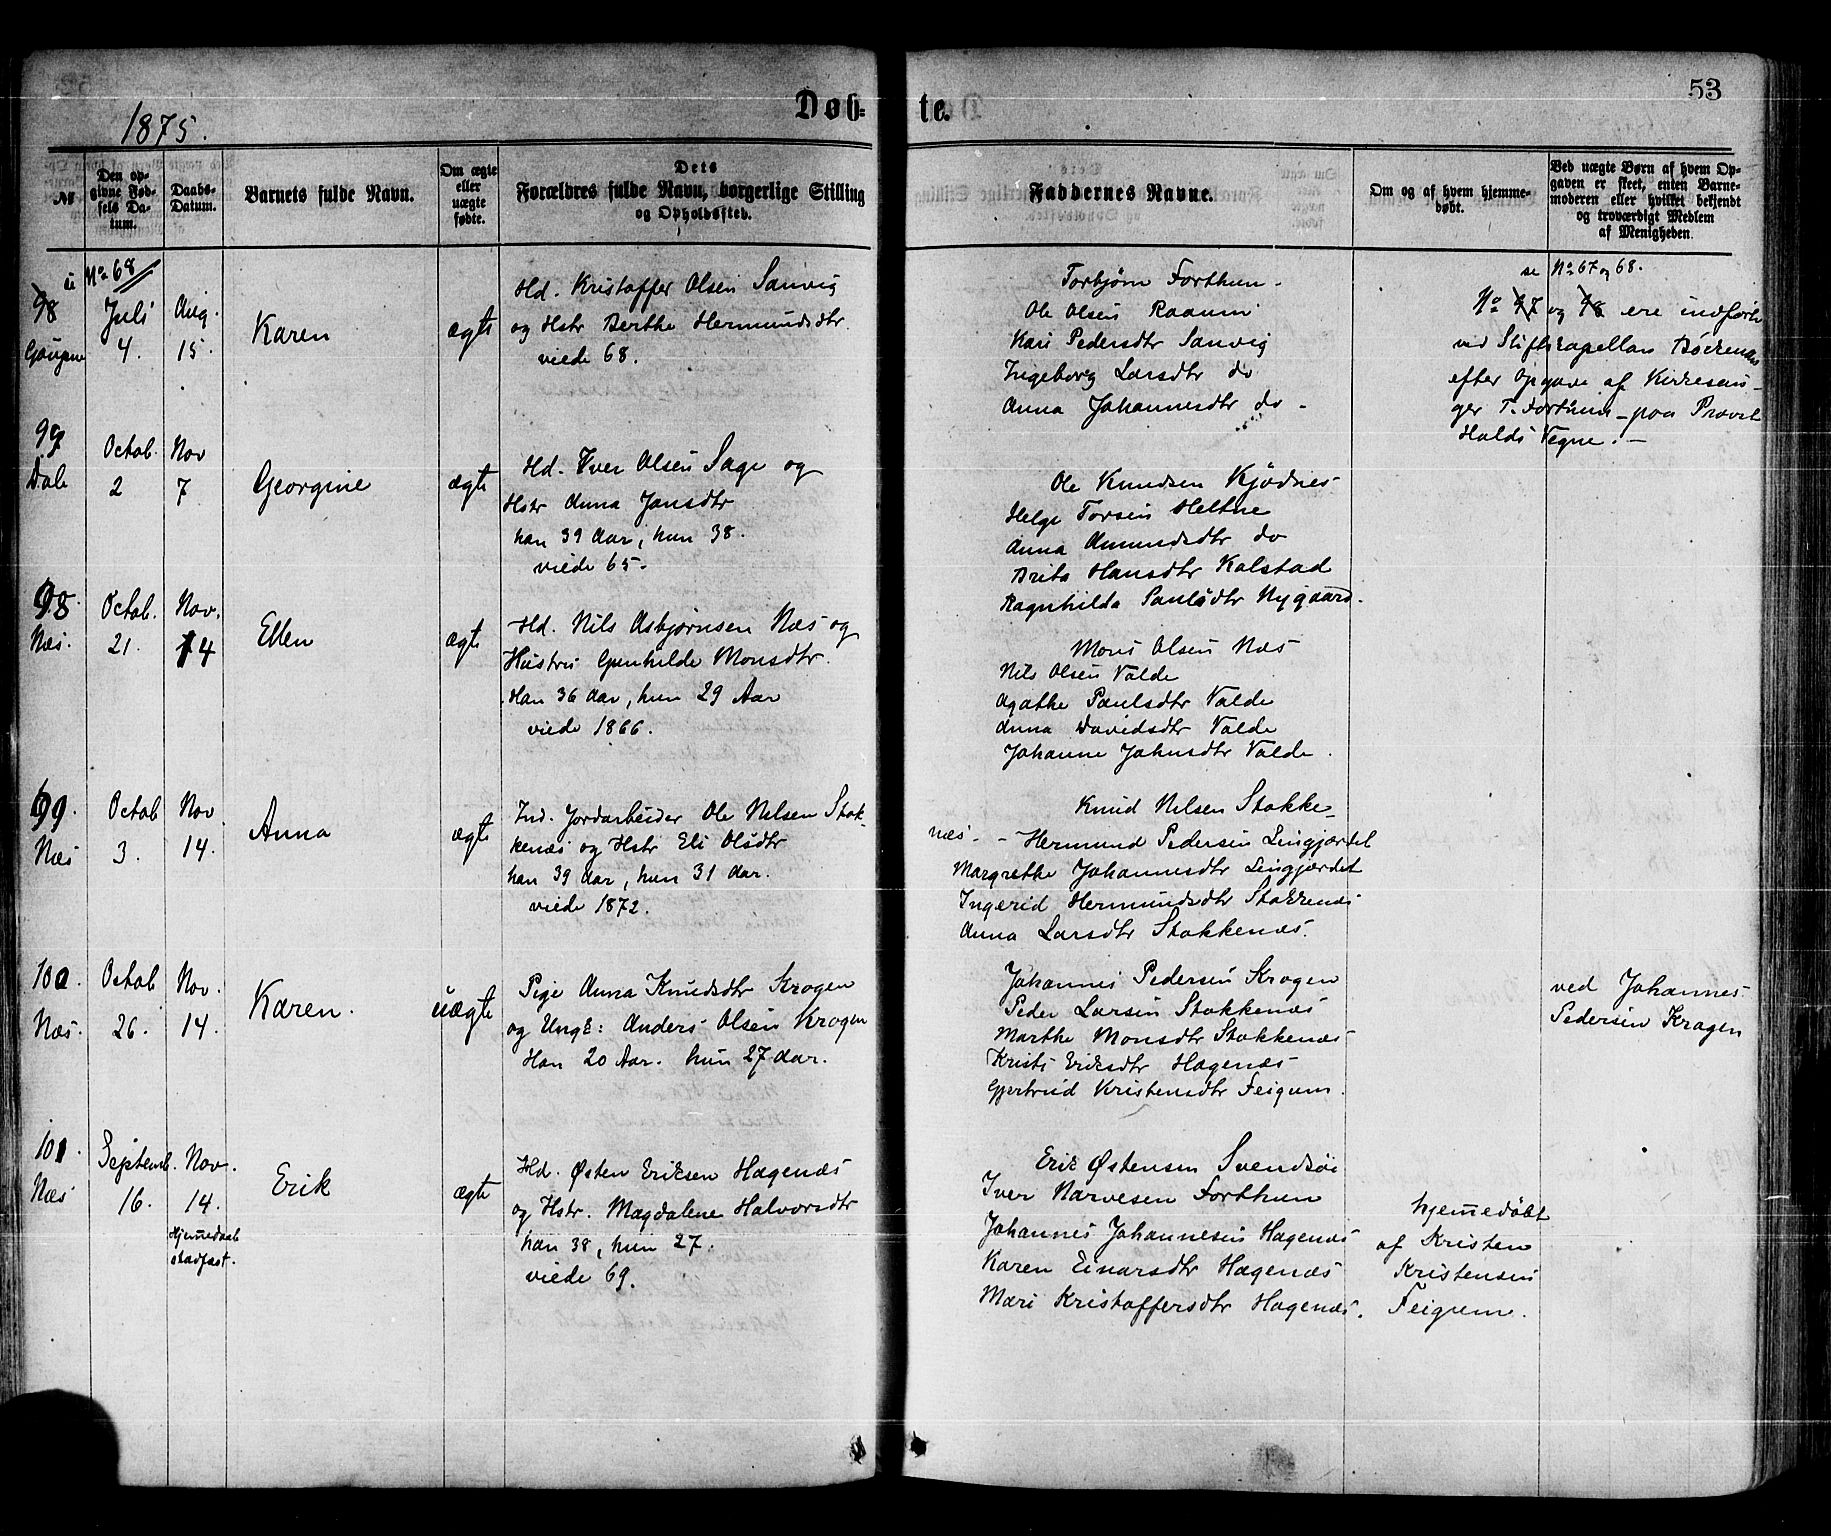 1875.
Døb-
te.
53
№
Den op-
givne Fød-
sels Da-
tum.
Daabs-
Datum.
Barnets fulde Navn.
Om ægte
eller
uægte
fødte.
Dets
Forældres fulde Navn, borgerlige Stilling
og Opholdssted.
Faddernes Navne.
Om og af hvem hjemme-
døbt.
Ved uægte Børn af hvem Op-
gaven er skeet, enten Barne-
moderen eller hvilket bekjendt
og troværdigt Medlem
af Menigheden.
No 68
98
Gaupne
Juli
4.
Aug.
15.
Karen
ægte
Hd. Kristoffer Olsen Sanvig
og Hstr Berthe Hermundsdtr.
viede 68.
Torbjørn Forthun.
Ole Olsen Raanui
Kari Pedersdtr Sanvig
Ingeborg Larsdtr do
Anna Johannesdtr do.
se No 67 og 68.
No 97 og 98 ere indførte
ved Stiftskapellan Bøckman
efter Opgave af Kirkesan-
ger T. Forthun - paa Provst
Halds Vegne. -
99
Dale
Octob.
2
Nov
7
Georgine
ægte
Hd. Iver Olsen Sage og
Hstr Anna Jansdtr
han 39 Aar, hun 38.
viede 65.
Ole Knudsen Kjødnes
Helge Torsen Heltne
Anna Amundsdtr do
Brita Hansdtr Kalstad
Ragnhilda Paulsdtr Nygaard.
98.
Næs.
Octob.
21.
Nov.
14
Ellen
ægte
Hd. Nils Asbjørnsen Næs og
Hustru Gunhilde Monsdtr.
Han 36 Aar, hun 29 Aar
viede 1866.
Mons Olsen Næs
Nils Olsen Valde
Agathe Paulsdtr Valde
Anna Davidsdtr Valde
Johanne Johnsdtr Valde.
99.
Næs
Octob
3.
Nov
14.
Anna
ægte
Ind. Jordarbeider Ole Nilsen Stok-
kenæs og Hstr Eli Olsdtr
han 39 Aar, hun 31 Aar.
viede 1872.
Knud Nilsen Stokke-
næs - - Hermund Pedersen Lingjærdet
Margrethe Johannesdtr Lingjærdet
Ingerid Hermundsdtr Stokkenæs
Anna Larsdtr Stokkenæs.
100.
Næs.
Octob
26.
Nov.
14.
Karen.
uægte
Pige Anna Knudsdtr Krogen
og Ungk: Anders Olsen Krogen
Han 20 Aar. hun 27 Aar.
Johannes Pedersen Krogen
Peder Larsen Stokkenæs
Marthe Monsdtr Stokkenæs
Kristi Eriksdtr Hagenæs
Gjertrud Kristensdtr Feigum.
ved Johannes
Pedersen Kragen
101.
Næs
Septemb.
16.
Nov.
14.
Hjemmedaab
stadfæst.
Erik
ægte
Hd. Østen Eriksen Hagenæs
og Hstr. Magdalene Halvorsdtr
han 38, hun 27.
viede 69.
Erik Østensen Svendsøi
Iver Narvesen Forthun
Johannes Johannesen Hagenæs
Karen Einarsdtr Hagenæs
Mari Kristoffersdtr Hagenæs.
hjemedøbt
af Kristen
Kristensen
Feigum.